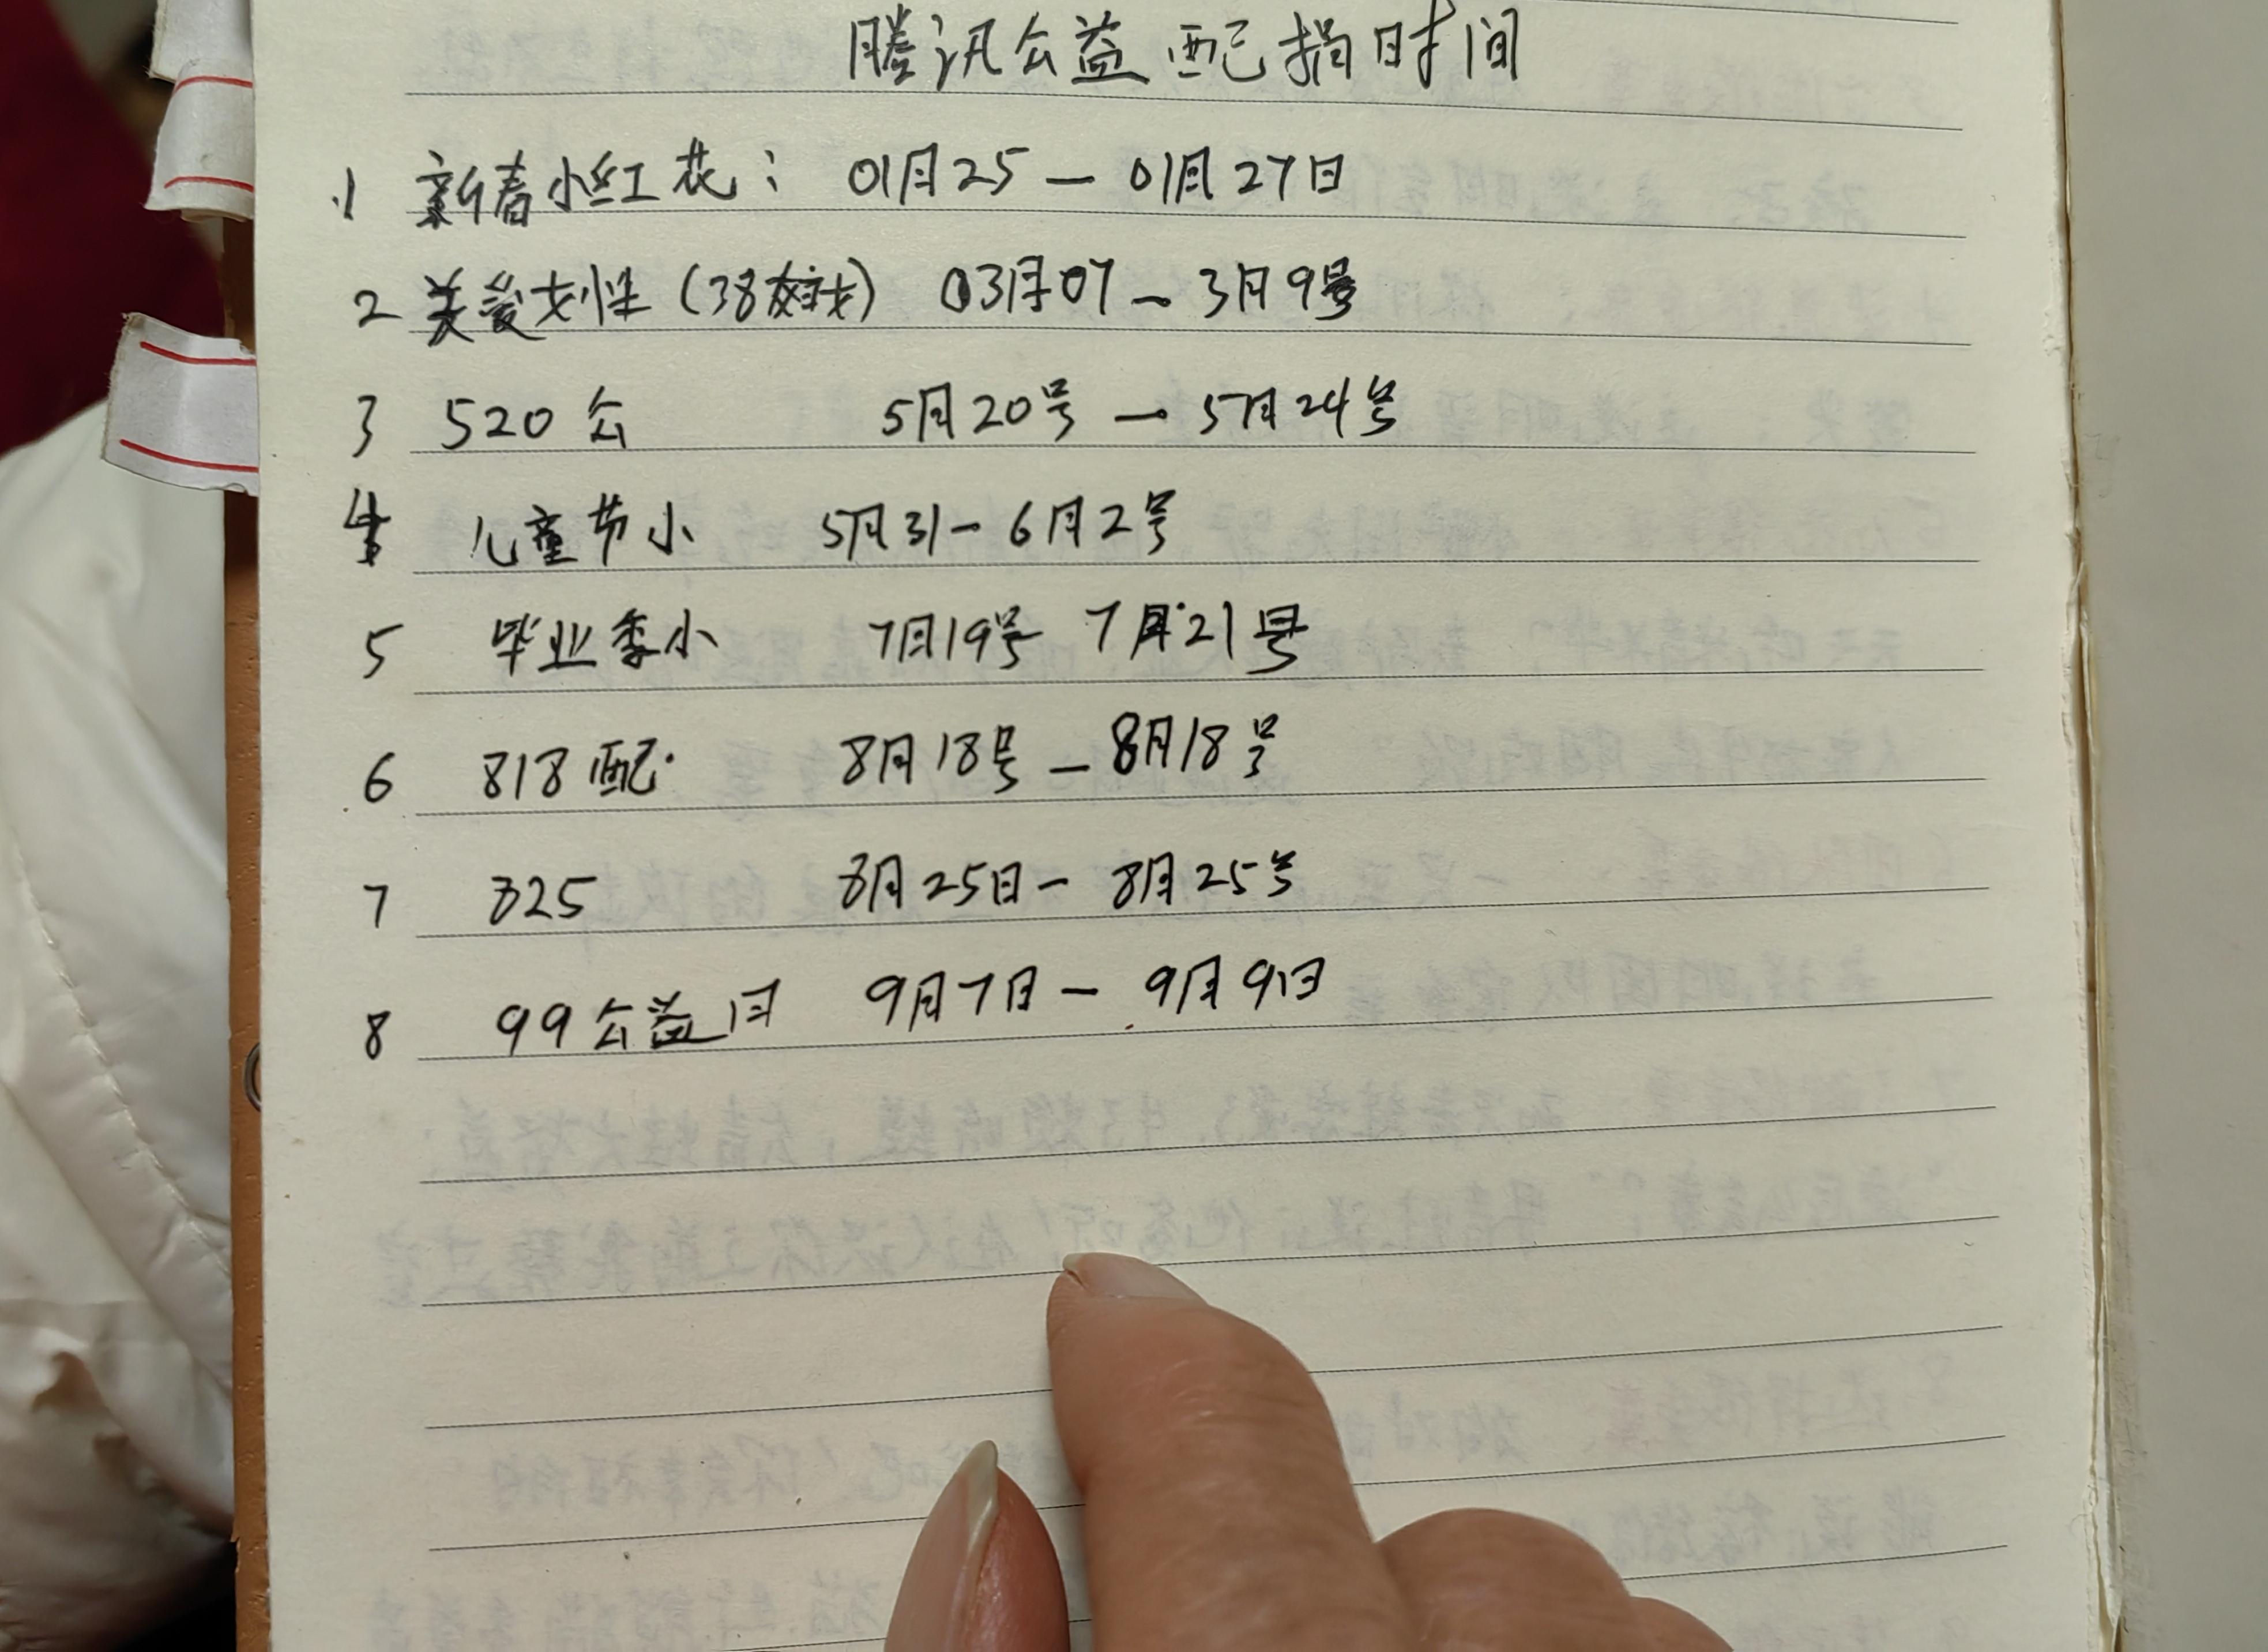 腾讯公益配捐时间
1 新春小红花: 01月25 — 01月27日
2 美爱女性 (38 03月07 — 3月9号
3 520公 5月20号 — 5月24号
4 儿童节小 5月31 - 6月2号
5 毕业季小 7月19号 7月21号
6 818配 8月18号 — 8月18号
7 825 8月25日 - 8月25号
8 99公益日 9月7日 - 9月9日